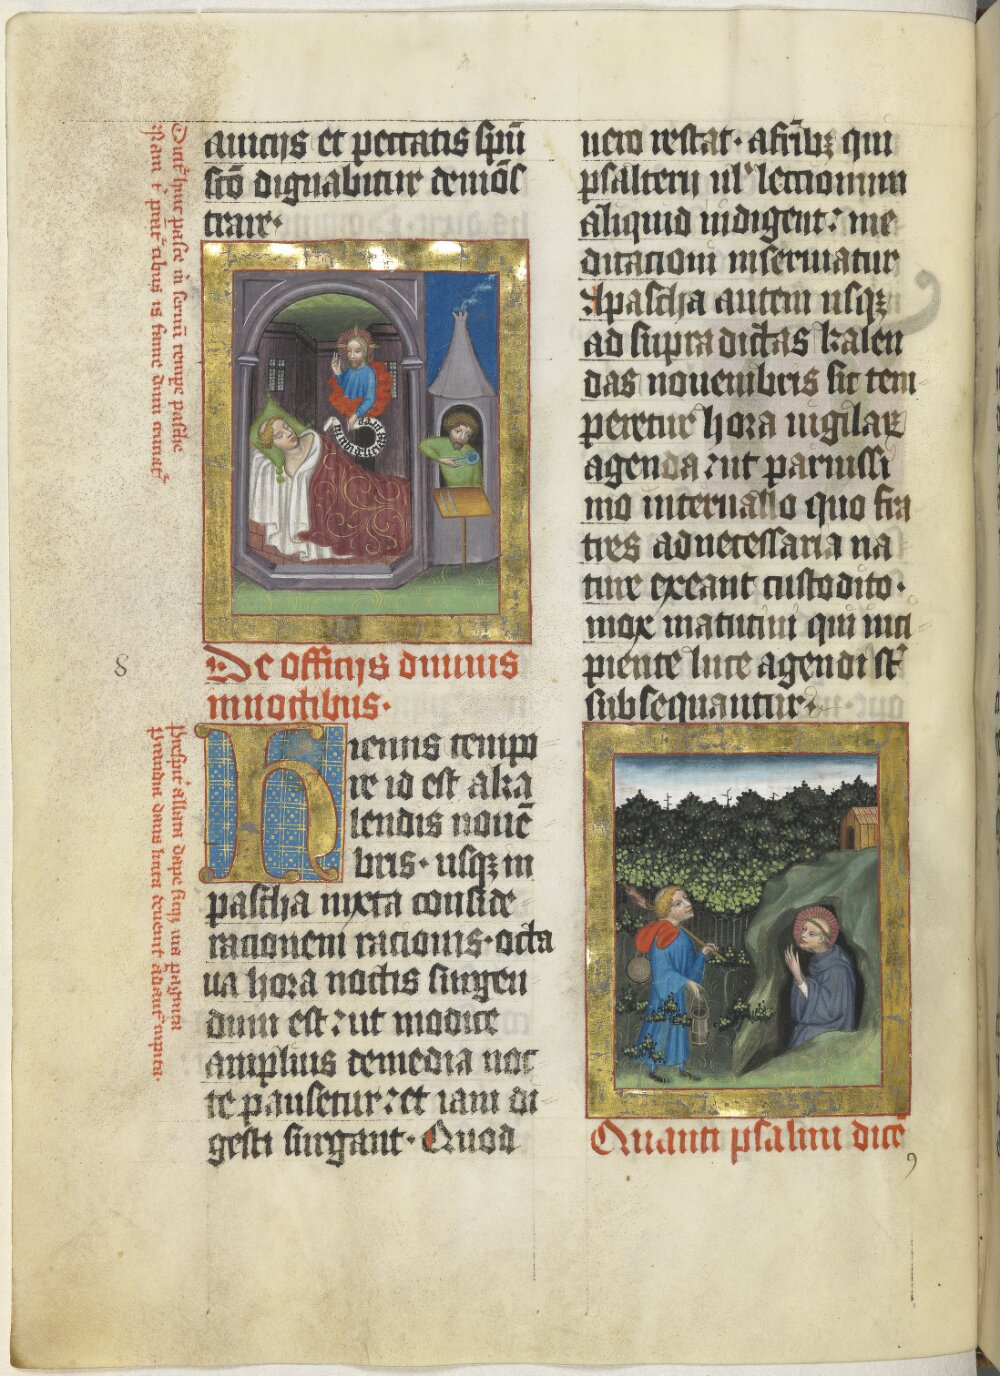 auicijs et peccatis spū
scō dignabitur demōs
trare·
De officijs diuinis
in noctibus·
hiemis tempo
re id est a ka
lendis nouē
bris· usqꝫ in
pascha iuxta conside
racionem racionis· octa
ua hora noctis surgen
dum est: ut modice
amplius de media noc
te pausetur: et iam di
gesti surgant· Quod
uero restat· a fr̄ibꝫ qui
psalterii ul' lectionum
aliquid indigent: me
ditacioni inseruiatur
A pascha autem usqꝫ
ad supra dictas kalen
das nouembris sic tem
peretur hora uigiliaꝝ
agenda: ut paruissi
mo interuallo quo fra
tres ad necessaria na
ture exeant custodito·
mox matutini qui inci
piente luce agendi st̄
subsequantur·
Quanti psalmi dicē
8
9